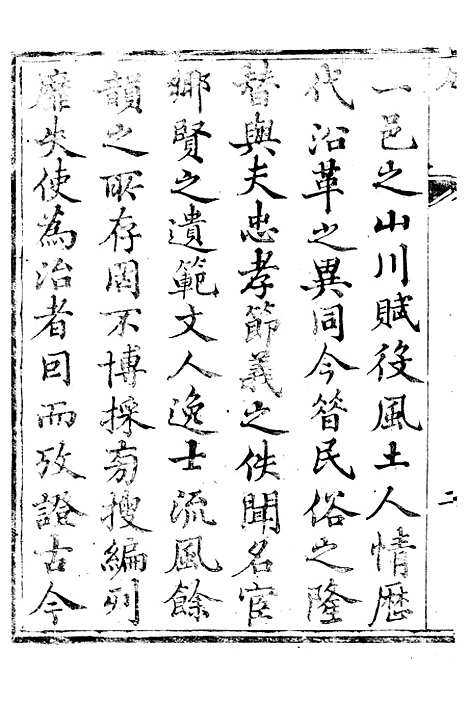 一邑之山川賦役風土人情歷
代沿革之異同今昝民俗之隆
替與夫忠孝節義之佚聞名宦
鄉賢之遺範文人逸士流風餘
韻之所存罔不博採旁搜編列
靡失使為治者因而攷證古今
二